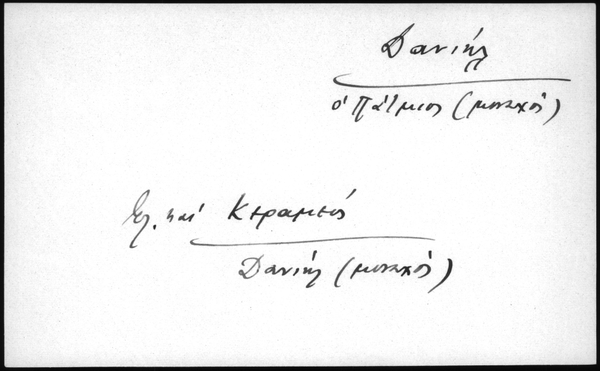 Δανιήλ
ὁ Πάτμιος (μοναχός)
βλ. καὶ Κεραμεύς
Δανιήλ (μοναχός)